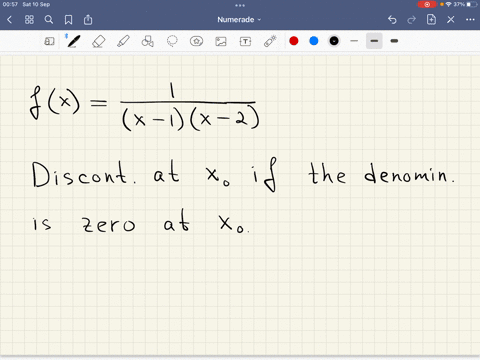 00:57 Sat 10 Sep
37%
Numerade
f(x) = 1 / (x-1)(x-2)
Discont. at x₀ if the denomin.
is zero at x₀.